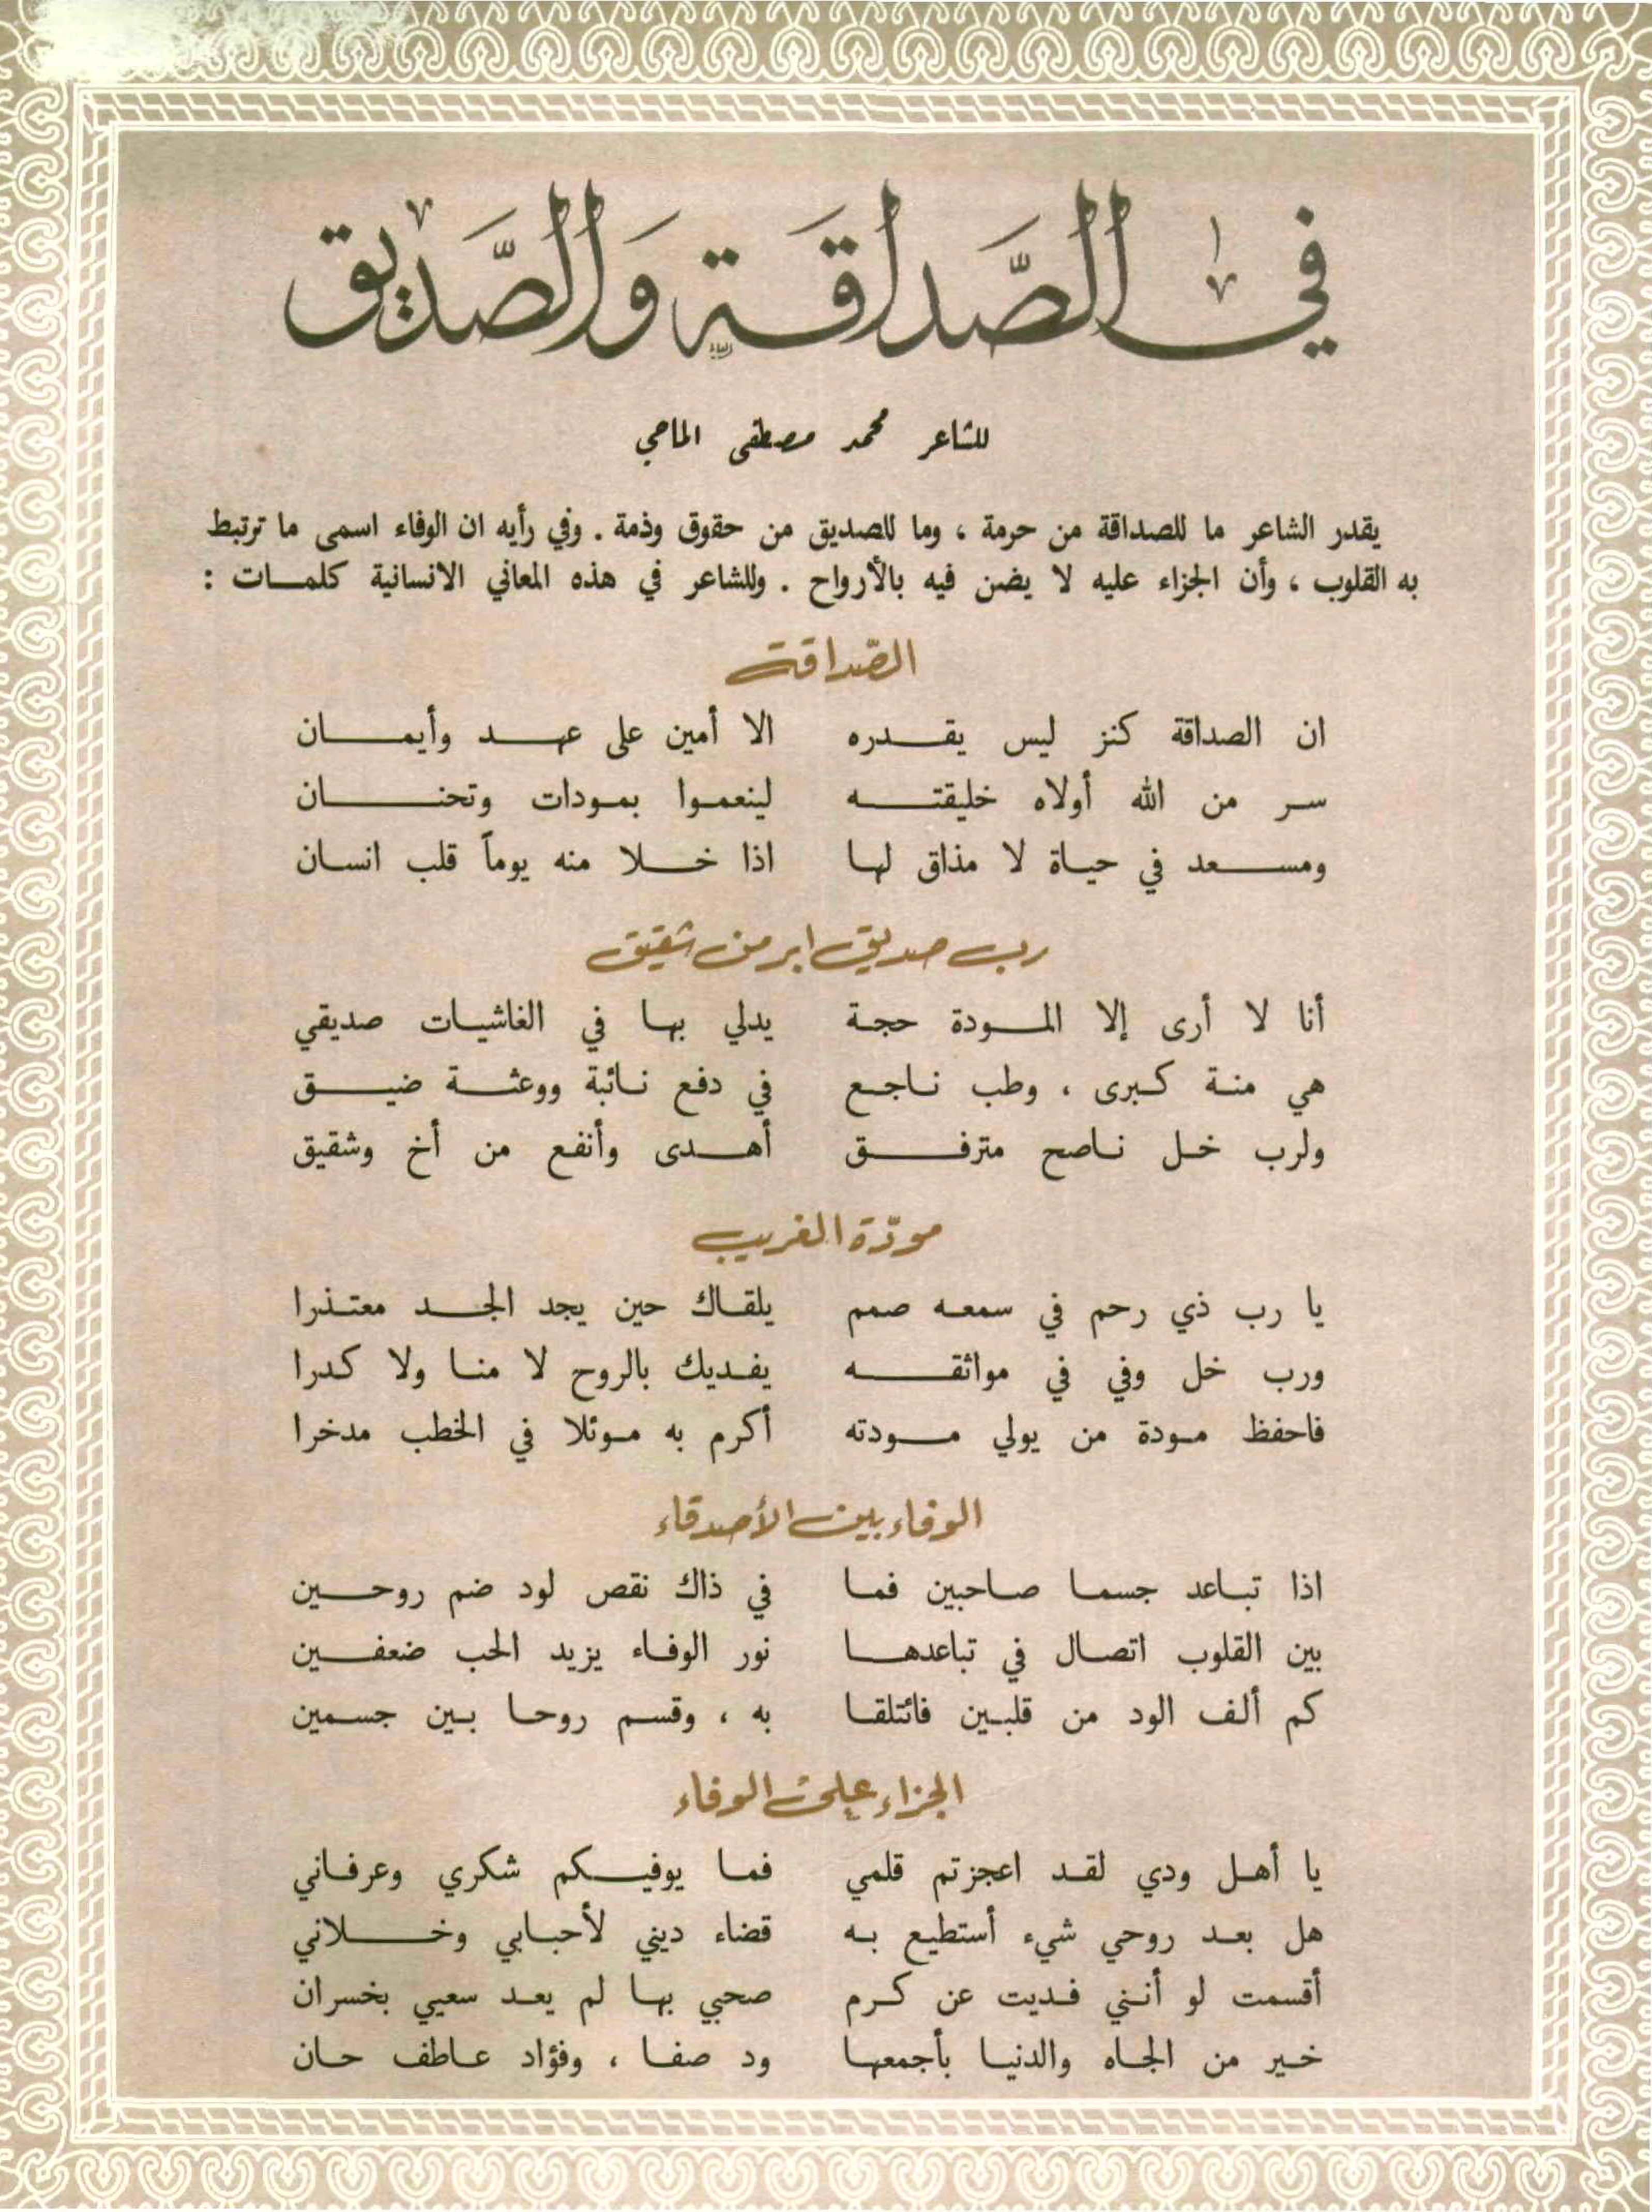 في الصَّداقَة وَالصَّديق
للشاعر محمد مصطفى الماحي
يقدر الشاعر ما للصداقة من حرمة ، وما للصديق من حقوق وذمة . وفي رأيه ان الوفاء اسمى ما ترتبط
به القلوب ، وأن الجزاء عليه لا يضن فيه بالأرواح . وللشاعر في هذه المعاني الانسانية كلمات :
الصّداقة
ان الصداقة كنز ليس يقدره الا أمين على عهد وأيمان
سر من الله أولاه خليقته لينعموا بمودات وتحنان
ومسعد في حياة لا مذاق لها اذا خلا منه يوماً قلب انسان
رب صديق ابر من شقيق
أنا لا أرى إلا المودة حجة يدلي بها في الغاشيات صديقي
هي منة كبرى ، وطب ناجع في دفع نائبة ووعثة ضيق
ولرب خل ناصح مترفق أهدى وأنفع من أخ وشقيق
مودّة الغريب
يا رب ذي رحم في سمعه صمم يلقاك حين يجد الجد معتذرا
ورب خل وفي في مواثقه يفديك بالروح لا منا ولا كدرا
فاحفظ مودة من يولي مودته أكرم به موئلا في الخطب مدخرا
الوفاء بين الأصدقاء
اذا تباعد جسما صاحبين فما في ذاك نقص لود ضم روحين
بين القلوب اتصال في تباعدها نور الوفاء يزيد الحب ضعفين
كم ألف الود من قلبين فائتلقا به ، وقسم روحا بين جسمين
الجزاء على الوفاء
يا أهل ودي لقد اعجزتم قلمي فما يوفيكم شكري وعرفاني
هل بعد روحي شيء أستطيع به قضاء ديني لأحبابي وخلاني
أقسمت لو أنني فديت عن كرم صحبي بها لم يعد سعيي بخسران
خير من الجاه والدنيا بأجمعها ود صفا ، وفؤاد عاطف حان